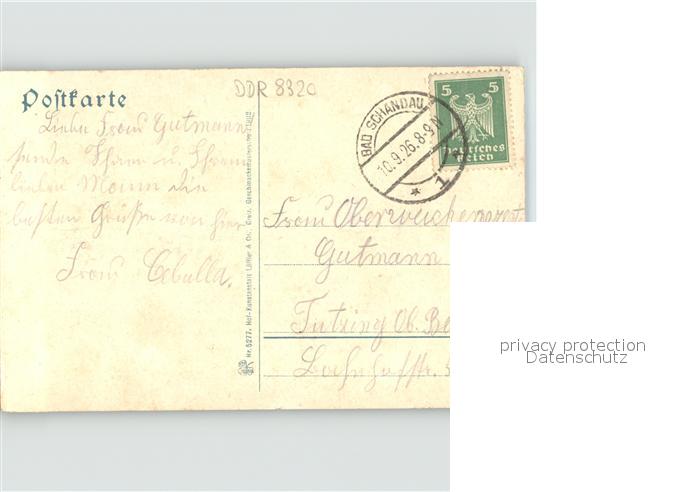 DDR 8320
Postkarte
Liebe Frau Gutmann
sende Ihnen u. Ihrem
lieben Mann die
besten Grüße von hier
Frau Cebulla.
Nr. 5277. Hof-Kunstanstalt Löffler & Co. Greiz.
BAD SCHANDAU
10.9.26.8-9 N
* 1
5 5
Deutsches
Reich
Frau
Gutmann
Tutzing Ob. Ba
Bahnhofstr.
privacy protection
Datenschutz